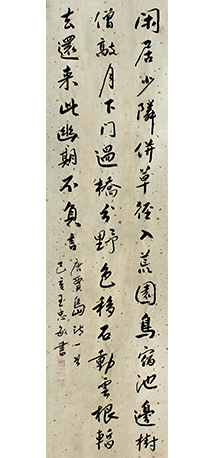 闲居少隣併草径入荒園鳥宿池邊樹
僧敲月下门過橋分野色移石動雲根暫
去還来此幽期不負言
唐賈島诗一首
己亥王忠義書